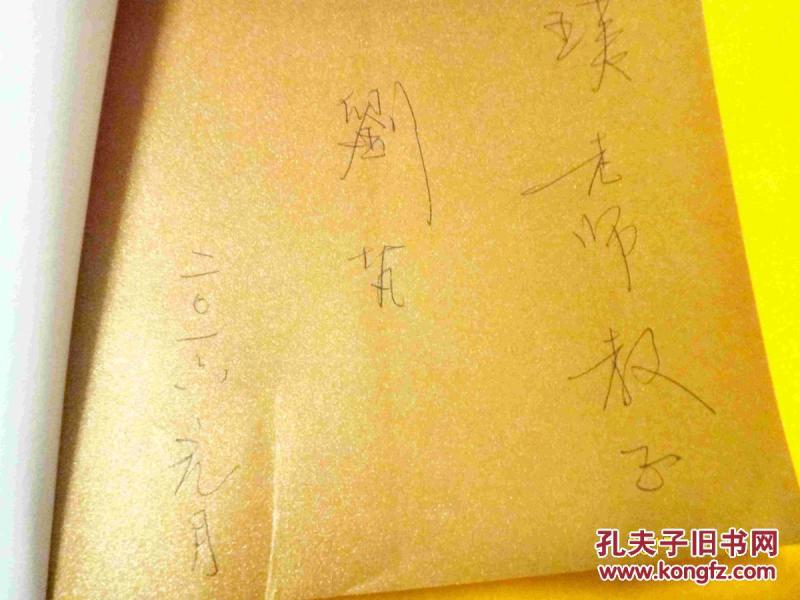 璞老师教正
劉芃
二〇一六、元月
孔夫子旧书网
www.kongfz.com